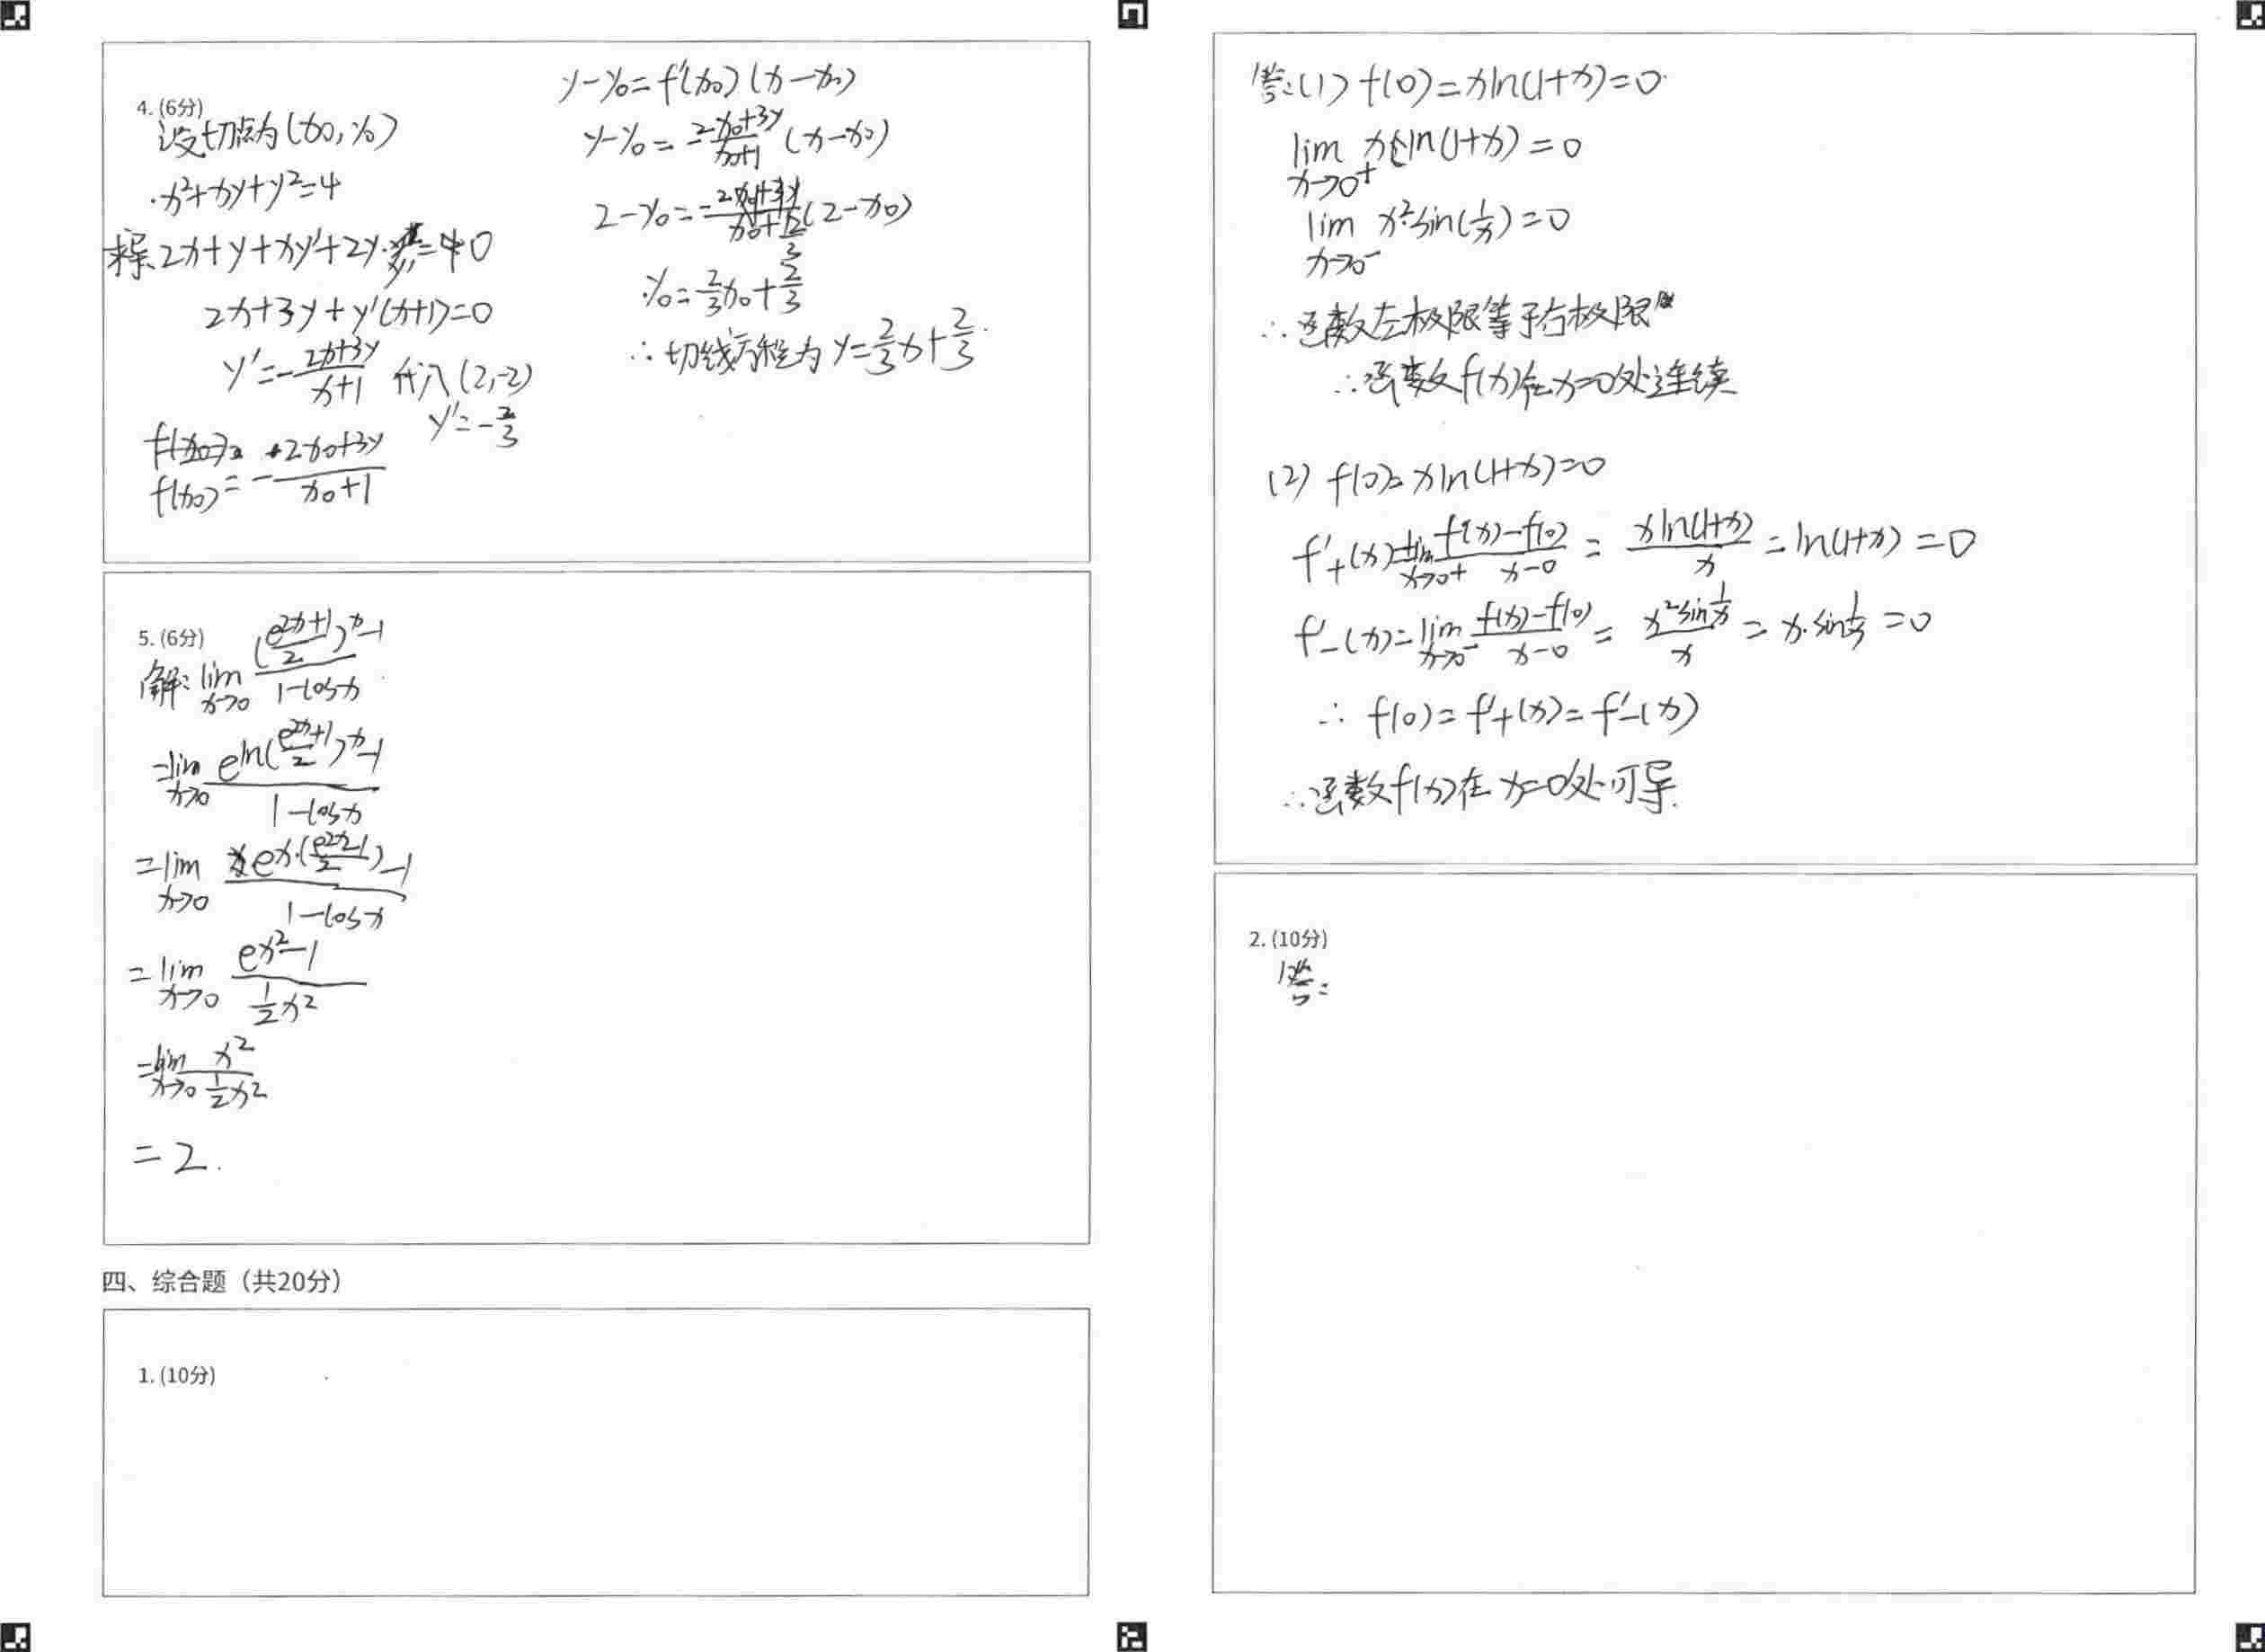 4. (6分)
设切点为(x₀, y₀)
x²+xy+y²=4
求导 2x+y+xy'+2y·y'=0
2x+3y+y'(x+1)=0
y'=-(2x+3y)/(x+1) 代入(2,-2)
y'=-2/3
f(x₀)=-(2x₀+3y)/(x₀+1)
y-y₀=f'(x₀)(x-x₀)
y-y₀=-(2x₀+3y)/(x₀+1) (x-x₀)
y₀=2/3x₀+2/3
∴切线方程为y=2/3x+2/3
5. (6分)
解: lim x→0 (((e^2x+1)/2)^x-1)/(1-cosx)
=lim x→0 (e^ln((e^2x+1)/2)^x-1)/(1-cosx)
=lim x→0
1-cosx
=lim x→0 (e^x²-1)/(1/2x²)
=lim x→0 x²/(1/2x²)
=2.
四、综合题（共20分）
1. (10分)
答:(1) f(0)=xln(1+x)=0
lim x→0⁺ x ln(1+x)=0
lim x→0⁻ x²·sin(1/x)=0
∴函数左极限等于右极限
∴函数f(x)在x=0处连续
(2) f(0)=xln(1+x)=0
f'₊(x)=lim x→0⁺ (f(x)-f(0))/(x-0) = xln(1+x)/x =ln(1+x)=0
f'₋(x)=lim x→0⁻ (f(x)-f(0))/(x-0) = x²sin(1/x)/x = x·sin1/x =0
∴ f(0)=f'₊(x)=f'₋(x)
∴函数f(x)在x=0处可导.
2. (10分)
答: